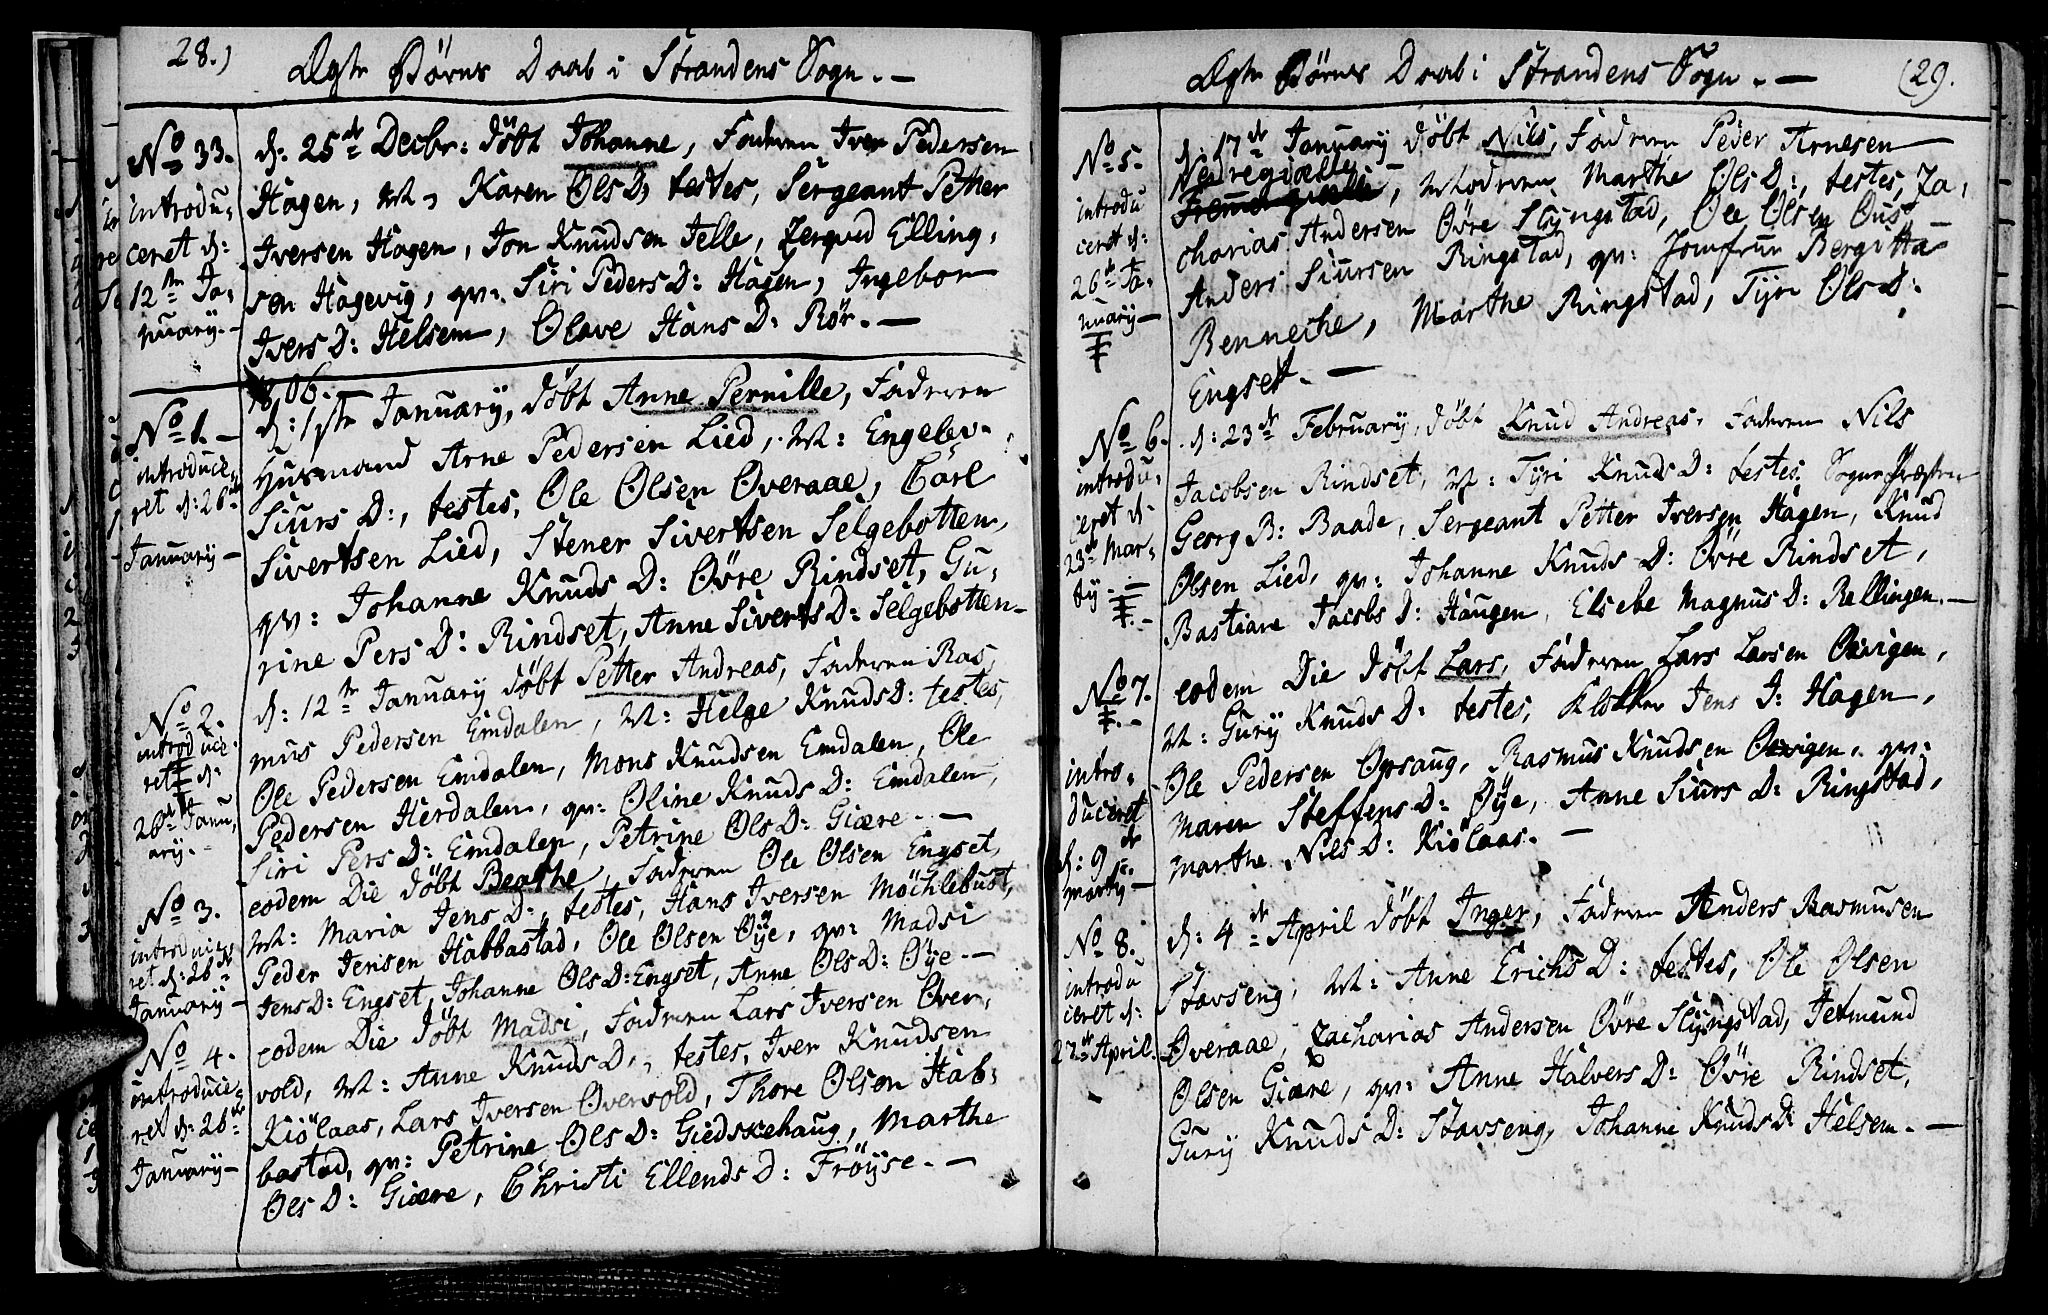 28.)
Ægte Børns Daab i Strandens Sogn. —
No 33.
introdu,
ceret d:
12te Ja,
nuary. —
d: 25de Decbr: døbt Johanne, Faderen Iver Pedersen
Hagen, M., Karen OlsD, testes, Sergeant Petter
Iversen Hagen, Jon Knudsen Jelle, Elling,
sen Hagevig, qv: Siri PedersD: Hagen, Ingebor
IversD: Helsem, Olave HansD: Rör. —
1806. —
No 1. —
introduce,
ret d: 26de
January —
d: 1ste January, døbt Anne Pernille, Faderen
Husmand Arne Pedersen Lied, M: Engelev
Siurs D:, testes, Ole Olsen Øveraae, Carl
Sivertsen Lied, Stener Sivertsen Selgebotten,
qv: Johanne Knuds D: Øvre Rindset, Gu,
rine Pers D: Rindset, Anne Siverts D: Selgebotten —
No 2.
introduce,
ret d:
26de Janu,
ary. —
d: 12te January døbt Petter Andreas, Faderen Ras,
mus Pedersen Emdalen, M: Helge KnudsD: testes,
Ole Pedersen Emdalen, Mons Knudsen Emdalen, Ole
Pedersen Herdalen, qv: Oline Knuds D: Emdalen,
Siri Pers D: Emdalen, Petrine Ols D: Giære. —
No 3.
introduce,
ret d: 26de
January —
eodem Die døbt Beathe, Faderen Ole Olsen Engset,
M: Maria Jens D:, testes, Hans Iversen Möchlebust,
Peder Jensen Habbastad, Ole Olsen Øÿe, qv: Madsi
JensD: Engset, Johanne OlsD: Engset, Anne OlsD: Øÿe. —
No 4.
introduce,
ret d: 26de
January —
eodem Die døbt Madsi, Faderen Lars Iversen Over,
vold, M: Anne Knuds D., testes, Iver Knudsen
Kiölaas, Lars Iversen Overvold, Thore Olsen Hab,
bastad, qv: Petrine Ols D: Giedskehaug, Marthe
Ols D: Giære, Christi Ellends D: Fröÿse. —
Ægte Børns Daab i Strandens Sogn. —
(29.
No 5.
introdu
ceret d:
26de Ja,
nuary —
d: 17de January døbt Nils, Faderen Peder Arnesen
Nedregiælle
, Moderen Marthe Ols D:, testes, Za,
charias Andersen Øvre Slÿngstad, Ole Olsen Øus,
Anders Siursen Ringstad, qv: Jomfrue Bergitta
Benneche, Marthe Ringstad, Tÿri Ols D:
Engset. —
No 6.
introdu,
ceret d:
23de Mar,
tÿ. —
d: 23de February, døbt Knud Andreas, Faderen Nils
Jacobsen Rindset, M: Tÿri Knuds D: testes, Sogne Præsten
Georg B: Baade, Sergeant Petter Iversen Hagen, Knud
Olsen Lied, qv: Johanne Knuds D: Øvre Rindset,
Bastiane Jacobs D: Haugen, Elsebe Magnus D: Rellingen. —
No 7.
intro,
duceret
d: 9de
marty —
eodem Die døbt Lars, Faderen Lars Larsen Oxvigen,
M: Gurÿ Knuds D: testes, Klokker Jens J: Hagen,
Ole Pedersen Opsaug, Rasmus Knudsen Oxvigen, qv:
Maren Steffens D: Øÿe, Anne Siurs D: Ringstad,
Marthe Nils D: Kiölaas. —
No 8.
introdu
ceret d:
27de April.
d: 4de April døbt Inger, Faderen Anders Rasmusen
Stavseng, M: Anne Erichs D: testes, Ole Olsen
Øveraae, Zacharias Andersen Øvre Slÿngstad, Jetmund
Olsen Giære, qv: Anne Halvers D: Øvre Rindset,
Gurÿ Knuds D: Stavseng, Johanne Knuds D: Helsem. —